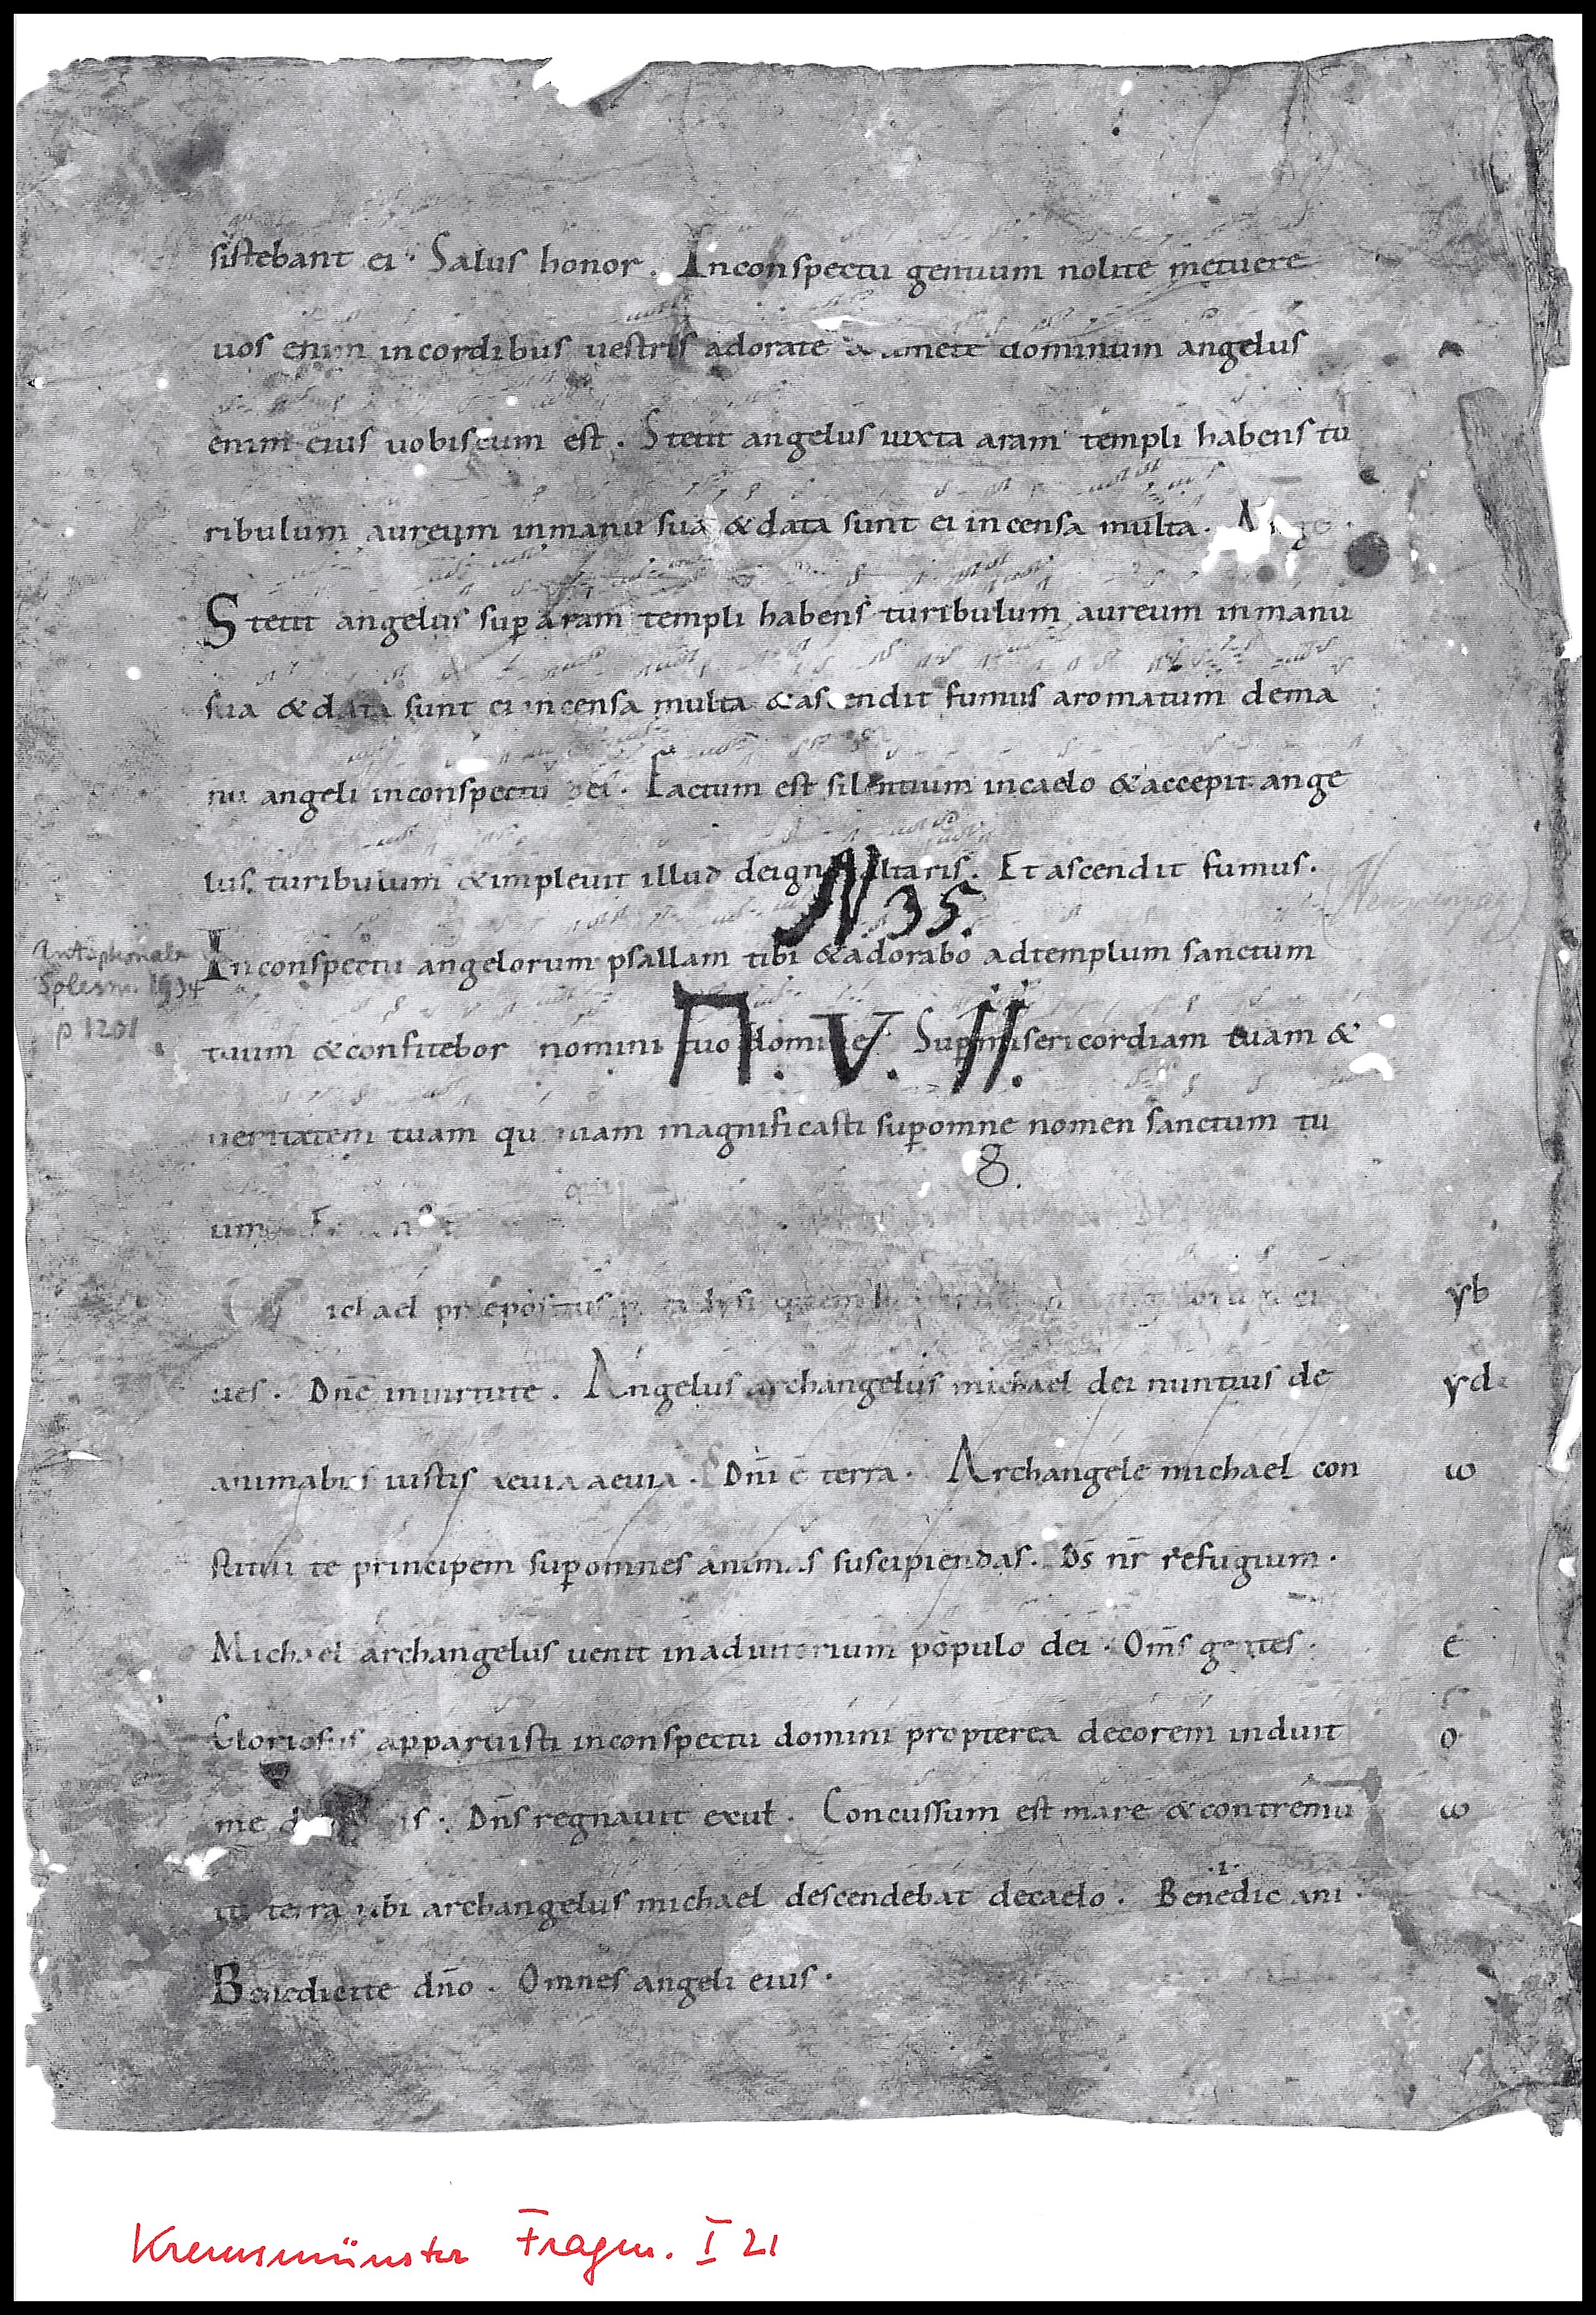 sistebant ei · Salus honor . Inconspectu gentium nolite metuere
uos enim incordibus uestris adorate dominum angelus
enim eius uobiscum est . Stetit angelus iuxta aram templi habens tu
ribulum aureum inmanu sua & data sunt ei incensa multa .
Stetit angelus sup aram templi habens turibulum aureum inmanu
sua & data sunt ei incensa multa & ascendit fumus aromatum dema
nu angeli inconspectu dei . Factum est silentium incaelo & accepit ange
lus turibulum & impleuit illud deigne altaris . Et ascendit fumus .
N. 35.
Antiphonale
Inconspectu angelorum psallam tibi & adorabo adtemplum sanctum
Solesm. 1934
p 1201
tuum & confitebor nomini tuo domine Sup misericordiam tuam &
Π. V. II.
ueritatem tuam quoniam magnificasti sup omne nomen sanctum tu
8.
um
Michael prepositus paradysi quem yb
ues . Dnē inuirtute . Angelus archangelus michael dei nuntius de yd
animabus iustis aeuia aeuia . Dnī ē terra . Archangele michael con ω
stitui te principem sup omnes animas suscipiendas . Ds̄ nr̄ refugium .
Michael archangelus uenit inadiutorium populo dei . Om̄s gentes . e
Gloriosus apparuisti inconspectu domini propterea decorem induit o
me Dn̄s regnauit exult . Concussum est mare & contremu ω
it terra ubi archangelus michael descendebat decaelo . Benedic ani . .1.
Benedicite dn̄o . Omnes angeli eius .
Kremsmünster Fragm. I 21